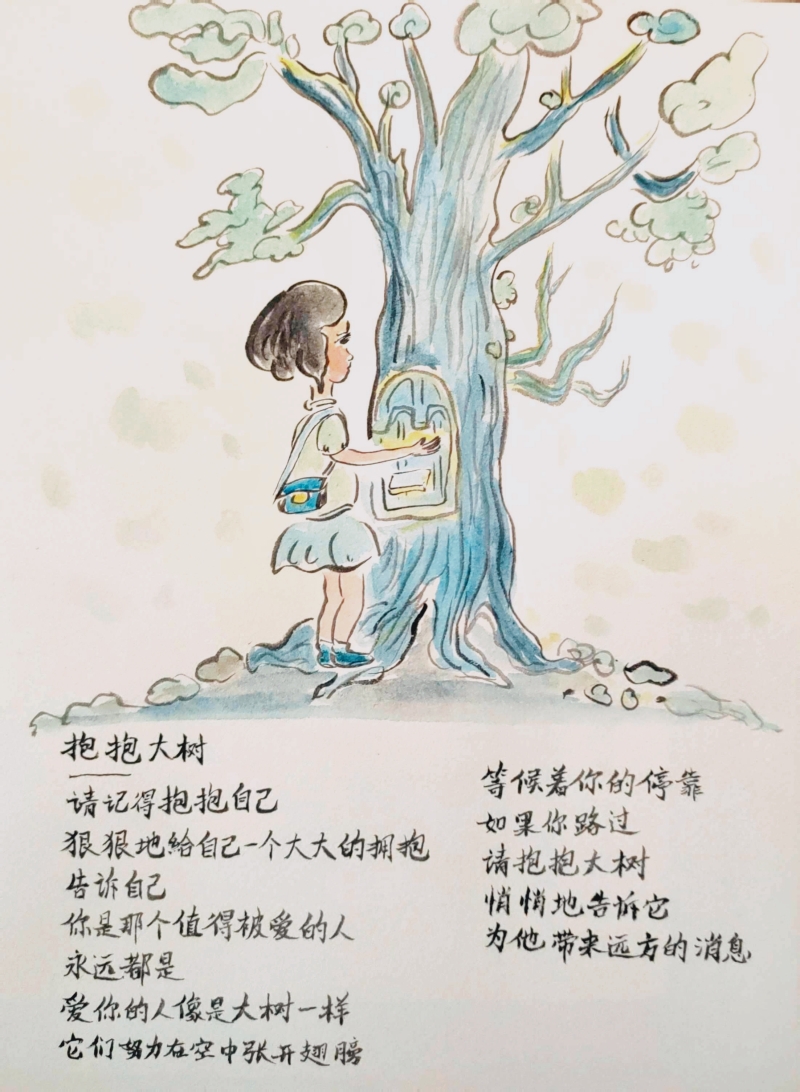 抱抱大树
请记得抱抱自己
狠狠地给自己一个大大的拥抱
告诉自己
你是那个值得被爱的人
永远都是
爱你的人像是大树一样
它们努力在空中张开翅膀
等候着你的停靠
如果你路过
请抱抱大树
悄悄地告诉它
为他带来远方的消息